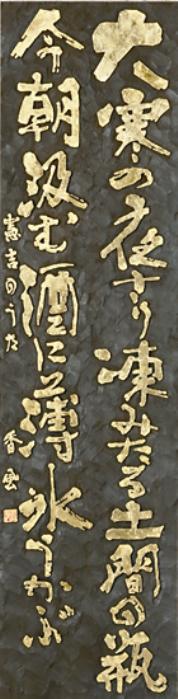 大寒の夜すり凍みたる土間の瓶
今朝汲む酒に薄氷うかぶ
憲吉のうた
香雲